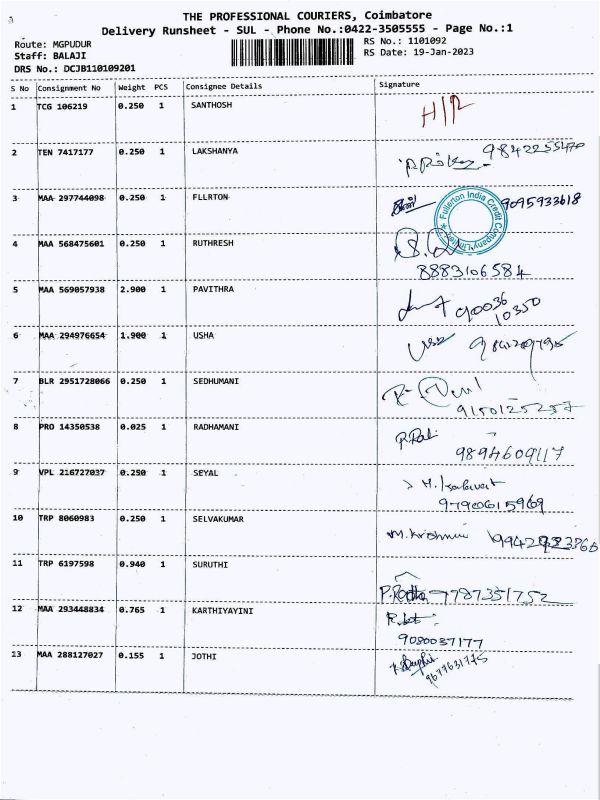 THE PROFESSIONAL COURIERS, Coimbatore
Delivery Runsheet - SUL - Phone No.:0422-3505555 - Page No.:1
Route: MGPUDUR RS No.: 1101092
Staff: BALAJI RS Date: 19-Jan-2023
DRS No.: DCJB110109201
S No Consignment No Weight PCS Consignee Details Signature
1 TCG 106219 0.250 1 SANTHOSH
2 TEN 7417177 0.250 1 LAKSHANYA 9842255470
3 MAA 297744098 0.250 1 FLLRTON Fullerton India Credit Company Limited 9095933618
4 MAA 568475601 0.250 1 RUTHRESH
8883106584
5 MAA 569057938 2.900 1 PAVITHRA 90036
10350
6 MAA 294976654 1.900 1 USHA
7 BLR 2951728066 0.250 1 SEDHUMANI
9150125257
8 PRO 14350538 0.025 1 RADHAMANI
9894609117
9 VPL 216727037 0.250 1 SEYAL
9790615969
10 TRP 8060983 0.250 1 SELVAKUMAR
11 TRP 6197598 0.940 1 SURUTHI
P.Radha 7787351752
12 MAA 293448834 0.765 1 KARTHIYAYINI
9080037177
13 MAA 288127027 0.155 1 JOTHI
9677631775